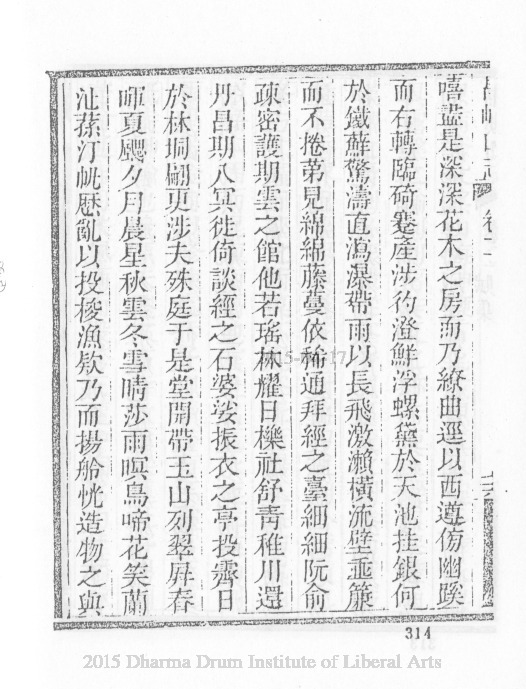 嘻盡是深深花木之房而乃繚曲遝以西遵仿幽蹊
而右轉臨碕蹇產涉彴澄鮮浮螺黛於天池挂銀何
於鐵蘚驚濤直瀉瀑帶雨以長飛激瀨橫流壁垂簾
而不捲苐見綿綿藤蔓依稀通拜經之臺細細阮俞
疎密護期雲之館他若瑤林耀日櫟社舒青稚川還
丹昌期入冥徙倚談經之石婆娑振衣之亭投霽日
於林垌翩更涉夫殊庭于是堂開帶玉山列翠屏春
暉夏颸夕月晨星秋雲冬雪晴莎雨暝鳥啼花笑蘭
沚蓀汀帆厯亂以投梭漁欸乃而揚舲恍造物之與
314
2015 Dharma Drum Institute of Liberal Arts